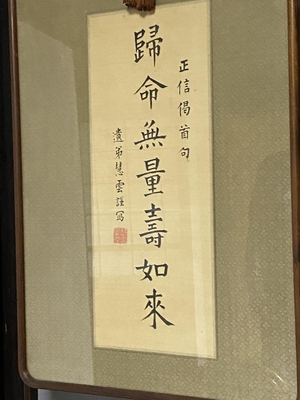 正信偈首句
歸命無量壽如來
遺弟慧雲謹寫